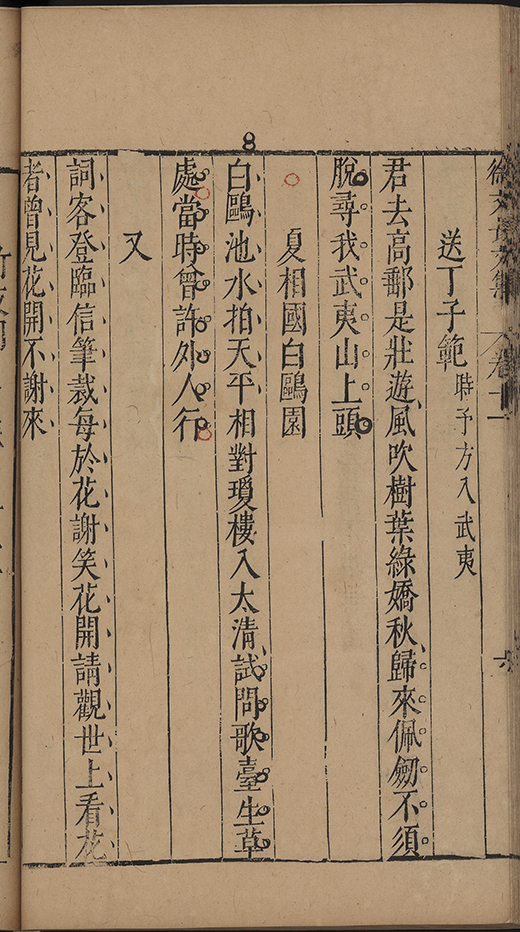 8
卷十一
送丁子範時予方入武夷
君去高郵是壯遊風吹樹葉綠嬌秋歸來佩劒不須
脫尋我武夷山上頭
夏相國白鷗園
白鷗池水拍天平相對瓊樓入太清試問歌臺生草
處當時曾許外人行
又
詞客登臨信筆裁每於花謝笑花開請觀世上看花
者曾見花開不謝來